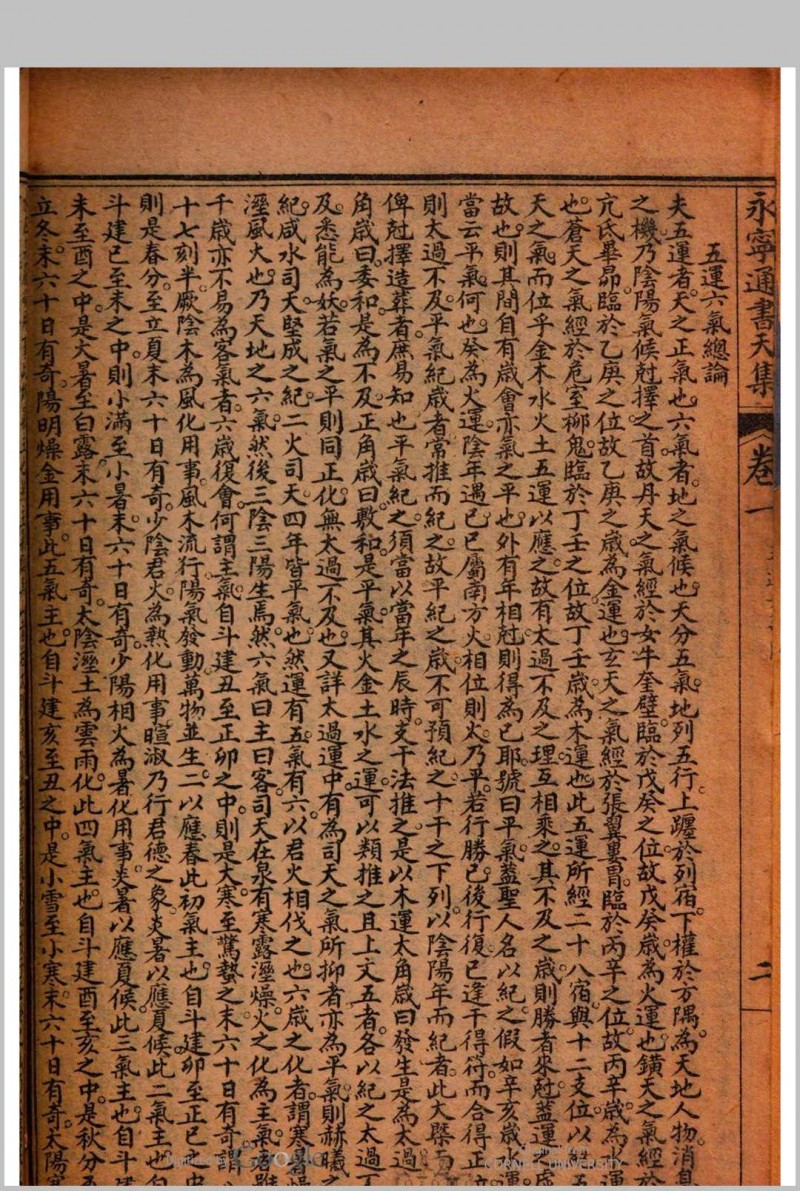 永寧通書天集
卷一
二
五運六氣總論
夫五運者天之正氣也六氣者地之氣候也天分五氣地列五行上躔於列宿下權於方隅為天地人物消息
之機乃陰陽氣候尅擇之首故丹天之氣經於女牛奎璧臨於戊癸之位故戊癸歲為火運也鈂天之氣經於
亢氐畢昴臨於乙庚之位故乙庚之歲為金運也玄天之氣經於張翼婁胃臨於丙辛之位故丙辛歲為水運
也蒼天之氣經於危室柳鬼臨於丁壬之位故丁壬歲為木運也此五運所經二十八宿與十二支位以結五
天之氣而位乎金木水火土五運以應之故有太過不及之理互相乘之其不及之歲則勝者來尅蓋運之虛
故也則其間自有歲會亦氣之平也外有年相尅則得為已耶號曰平氣蓋聖人名以紀之假如辛亥歲水運
當云平氣何也癸為火運陰年遇巳巳屬南方火相位則太乃平若行勝已後行復已逢干得符而合得正位
則太過不及平氣紀歲者常推而紀之故平紀之歲不可預紀之十干之下列以陰陽年而紀者此大槩而
俾尅擇造葬者庶易知也平氣紀之須當以當年之辰時支干法推之是以木運太角歲曰發生是為太過
角歲曰委和是為不及正角歲曰敷和是平氣其火金土水之運可以類推之且上文五者各以紀之太過丁
及悉能為妖若氣之平則同正化無太過不及也又詳太過運中有為司天之氣所抑者亦為平氣則赫曦之
紀咸水司天堅成之紀二火司天四年皆平氣也然運有五氣有六以君火相伐之也六歲之化者謂寒暑燥
溼風火也乃天地之六氣然後三陰三陽生焉然六氣曰主曰客司天在泉有寒露溼燥火之化為主氣者雖
千歲亦不易為客氣者六歲復會何謂主氣自斗建丑至正卯之中則是大寒至驚蟄之末六十日有奇謂八
十七刻半厥陰木為風化用事風木流行陽氣發動萬物並生二以應春此初氣主也自斗建卯至正巳之中
則是春分至立夏末六十日有奇少陰君火為熱化用事暄淑乃行君德之象炎暑以應夏候此二氣主也自
斗建巳至未之中則小滿至小暑末六十日有奇少陽相火為暑化用事炎暑以應夏候此三氣主也自斗建
未至酉之中是大暑至白露末六十日有奇太陰溼土為雲雨化此四氣主也自斗建酉至亥之中是秋分至
立冬末六十日有奇陽明燥金用事此五氣主也自斗建亥至丑之中是小雪至小寒末六十日有奇太陽寒
Google
CORNELL UNIVERSITY